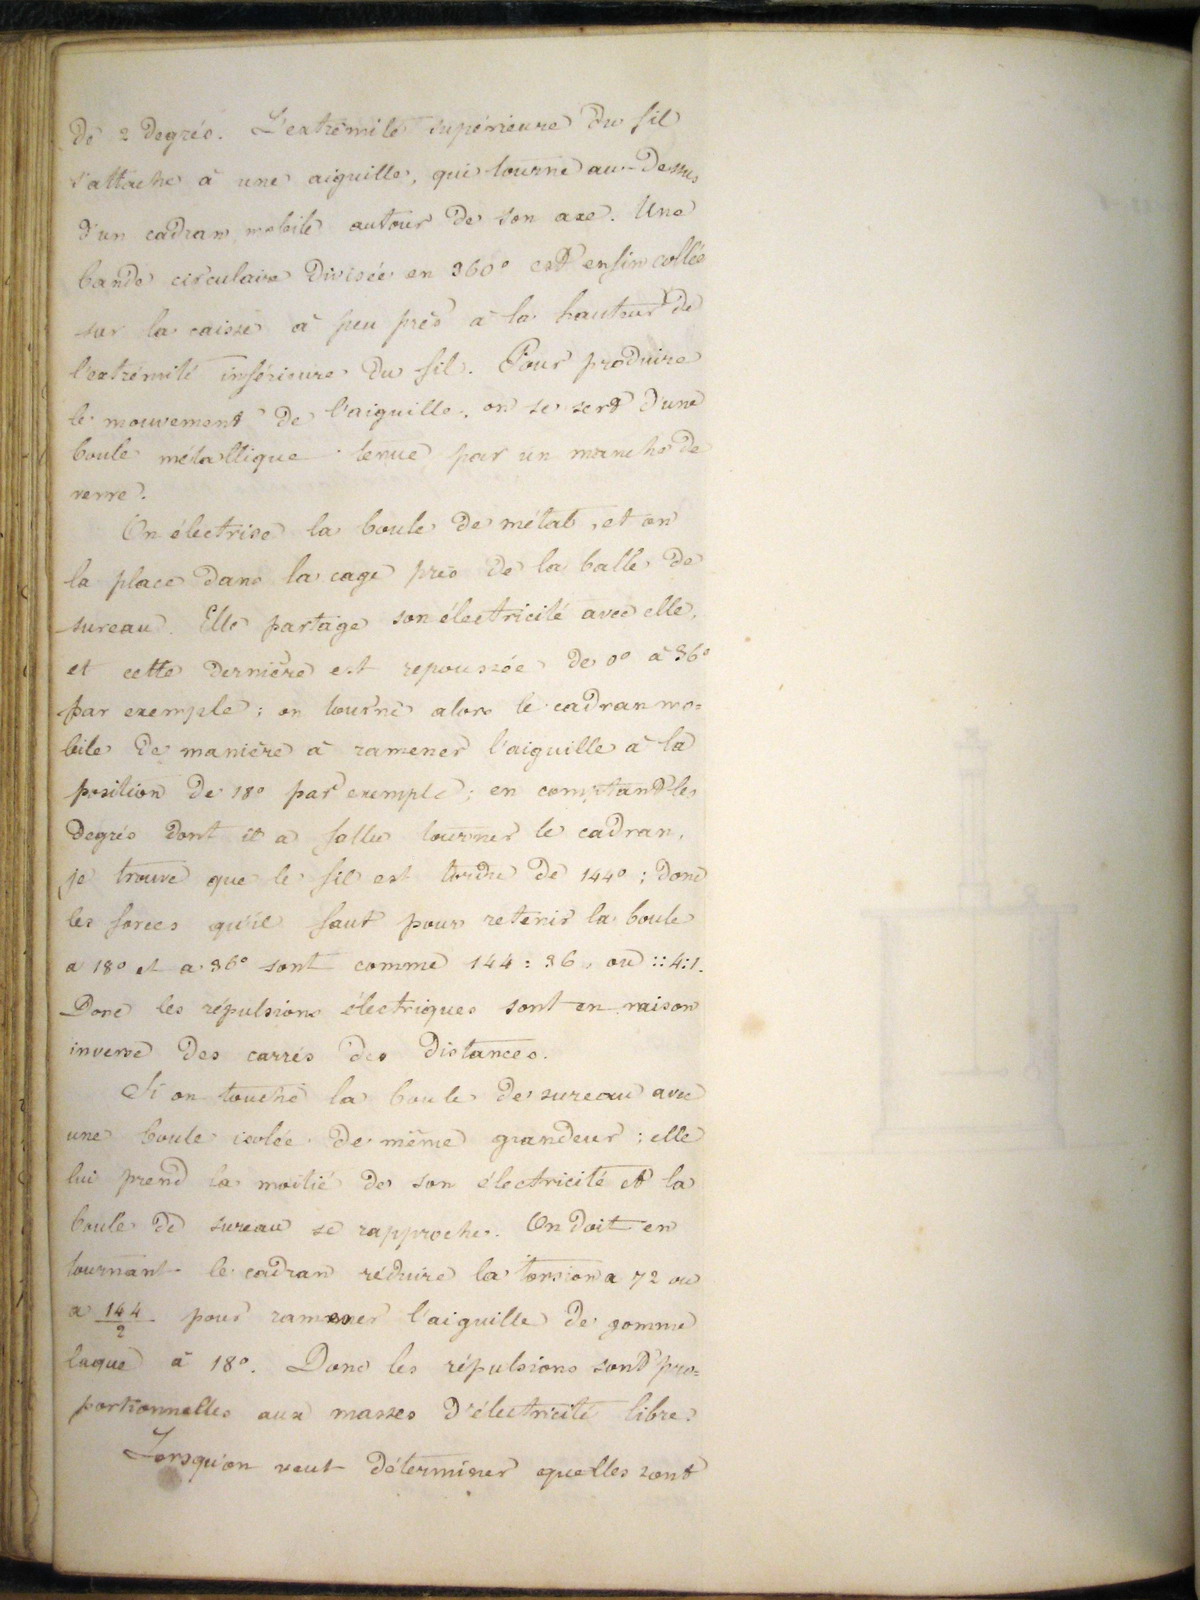 de 2 degrés. L'extrémité supérieure du fil
s'attache à une aiguille, qui tourne au-dessus
d'un cadran mobile autour de son axe. Une
bande circulaire divisée en 360° est enfin collée
sur la caisse à peu près à la hauteur de
l'extrémité inférieure du fil. Pour produire
le mouvement de l'aiguille, on se sert d'une
boule métallique tenue par un manche de
verre.
On électrise la boule de métal, et on
la place dans la cage près de la balle de
sureau. Elle partage son électricité avec elle,
et cette dernière est repoussée de 0° à 36°
par exemple; on tourne alors le cadran mo=
bile de manière à ramener l'aiguille à la
position de 18° par exemple; en comptant les
degrés dont il a fallu tourner le cadran,
je trouve que le fil est tordu de 144°; donc
les forces qu'il faut pour retenir la boule
a 18° et a 36° sont comme 144 : 36, ou :: 4:1.
Donc les répulsions électriques sont en raison
inverse des carrés des distances.
Si on touche la boule de sureau avec
une boule isolée de même grandeur; elle
lui prend la moitié de son électricité et la
boule de sureau se rapproche. On doit en
tournant le cadran réduire la torsion a 72 ou
a 144/2 pour ramener l'aiguille de gomme
laque à 18°. Donc les répulsions sont pro=
portionnelles aux masses d'électricité libre.
Lorsqu'on veut déterminer quelles sont